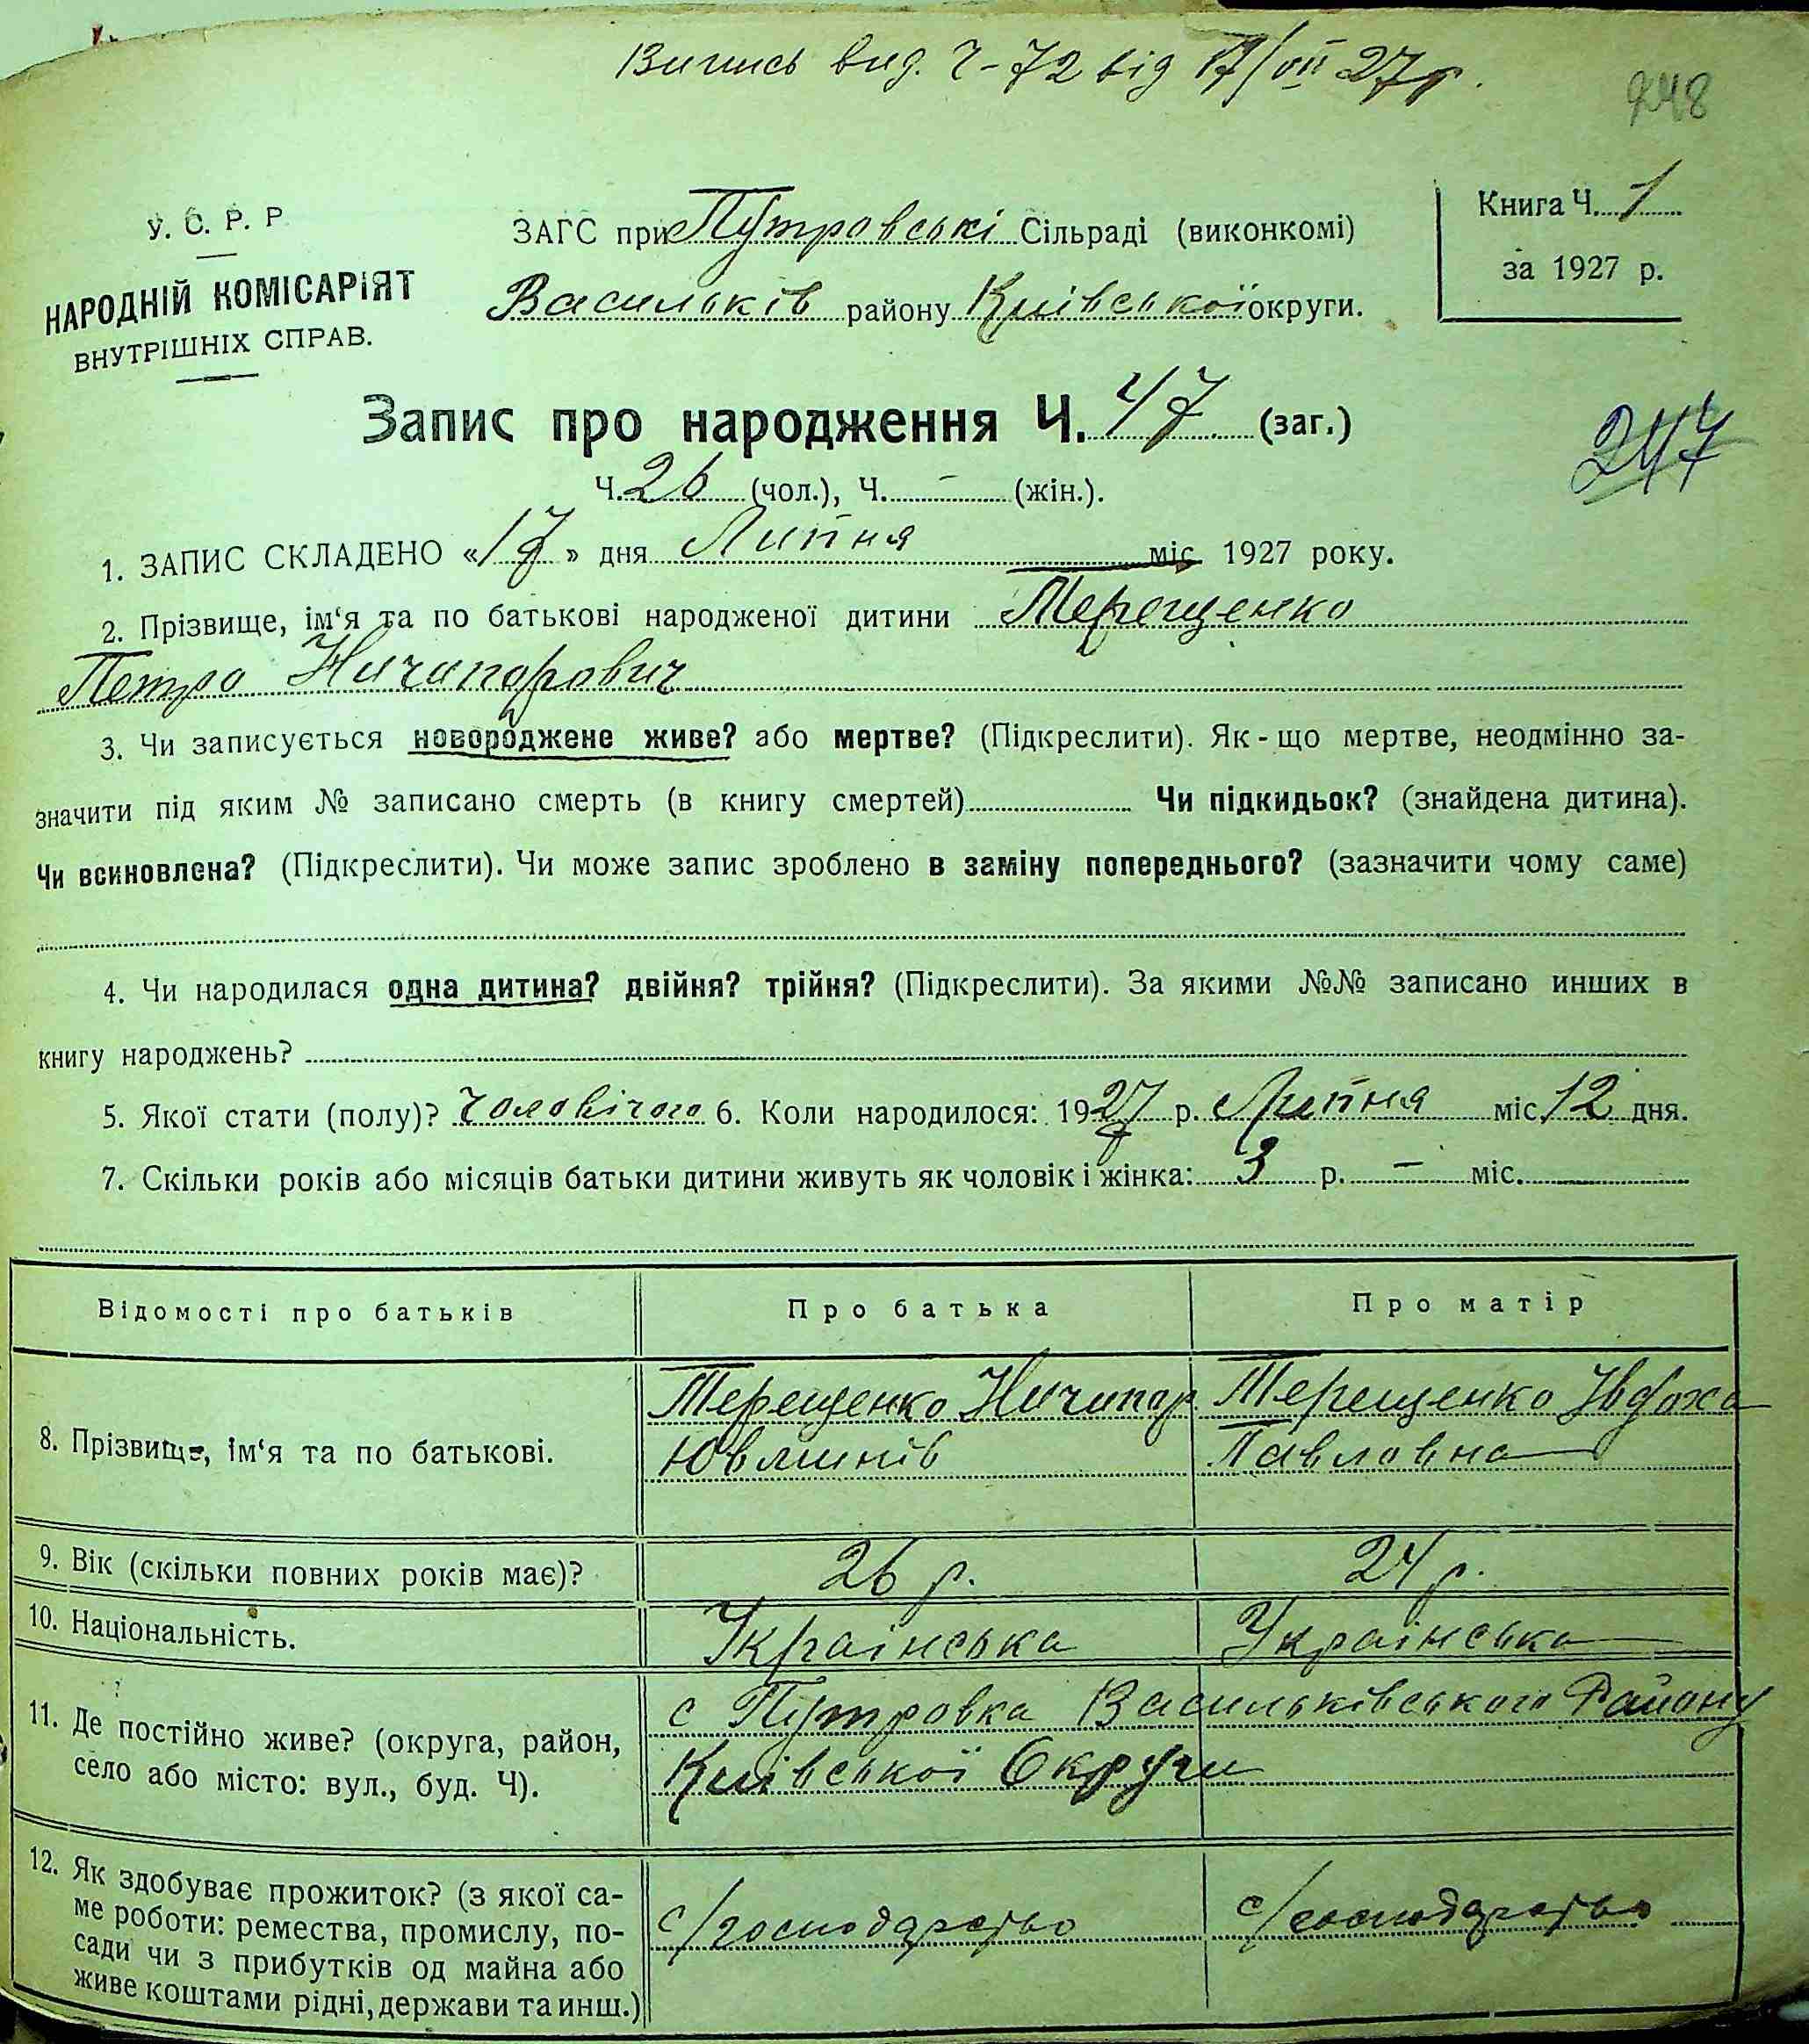 Випись вид. Ч-72 від 17/VII 27 р.
248
У. С. Р. Р
НАРОДНІЙ КОМІСАРІЯТ
ВНУТРІШНІХ СПРАВ.
ЗАГС при Путровські Сільраді (виконкомі)
Васильків району Київської округи.
Книга Ч. 1
за 1927 р.
Запис про народження Ч. 47 (заг.)
247
Ч. 26 (чол.), Ч. - (жін.).
1. ЗАПИС СКЛАДЕНО «17» дня Липня міс 1927 року.
2. Прізвище, ім‘я та по батькові народженої дитини Терещенко
Петро Ничипорович
3. Чи записується новороджене живе? або мертве? (Підкреслити). Як-що мертве, неодмінно за-
значити під яким № записано смерть (в книгу смертей) Чи підкидьок? (знайдена дитина).
Чи всиновлена? (Підкреслити). Чи може запис зроблено в заміну попереднього? (зазначити чому саме)
4. Чи народилася одна дитина? двійня? трійня? (Підкреслити). За якими №№ записано инших в
книгу народжень?
5. Якої стати (полу)? Чоловічого 6. Коли народилося: 1927 р. Липня міс. 12 дня.
7. Скільки років або місяців батьки дитини живуть як чоловік і жінка: 3 р. - міс.
Відомості про батьків Про батька Про матір
8. Прізвище, ім‘я та по батькові.
Терещенко Ничипор
Терещенко Івдоха
Павловна
9. Вік (скільки повних років має)? 26 р. 24 р.
10. Національність. Українська Українська
11. Де постійно живе? (округа, район,
село або місто: вул., буд. Ч).
с Путровка Васильківського Району
Київської Округи
12. Як здобуває прожиток? (з якої са-
ме роботи: ремества, промислу, по-
сади чи з прибутків од майна або
живе коштами рідні, держави та инш.)
с/господарство с/господарство